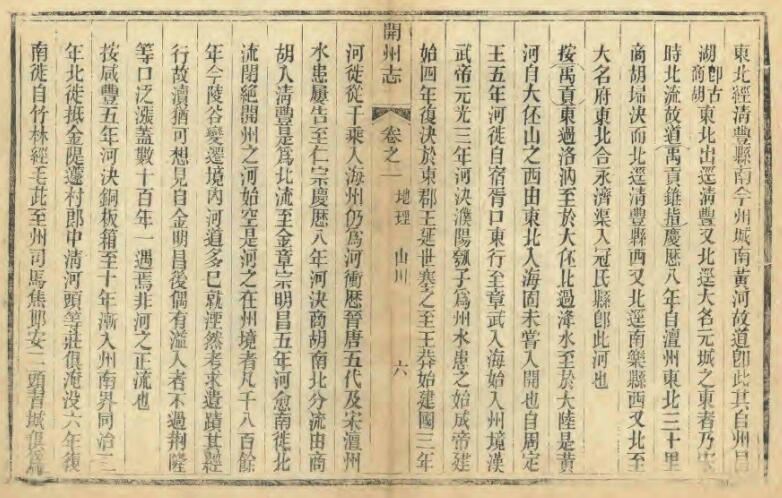 東北經清豐縣南今州城南黃河故道卽此其自州昌
湖卽古商胡東北出逕清豐又北逕大名元城之東者乃宋
時北流故道禹貢錐指慶歷八年自澶州東北三十里
商胡埽決而北逕清豐縣西又北逕南樂縣西又北至
大名府東北合永濟渠入冠氏縣卽此河也
按禹貢東過洛汭至於大伾北過洚水至於大陸是黃
河自大伾山之西由東北入海固未嘗入開也自周定
王五年河徙自宿胥口東行至章武入海始入州境漢
武帝元光三年河決濮陽瓠子為州水患之始成帝建
始四年復決於東郡王延世塞之至王莽始建國三年
開州志 卷之一 地理 山川 六
河徙從千乘入海州仍為河衝歷晉唐五代及宋澶州
水患屢告至仁宗慶歷八年河決商胡南北分流由商
胡入清豐是為北流至金章宗明昌五年河愈南徙北
流閉絕開州之河始空是河之在州境者凡千八百餘
年今陵谷變遷境內河道多已就湮然考求遺蹟其經
行故瀆猶可想見自金明昌後偶有溢入者不過荆隆
等口泛漲蓋數十百年一遇焉非河之正流也
按咸豐五年河決銅板箱至十年漸入州南界同治二
年北徙抵金隄邅村郎中清河頭等莊俱淹没六年復
南徙自竹林經毛茈至州司馬焦邱安二頭習城俱為